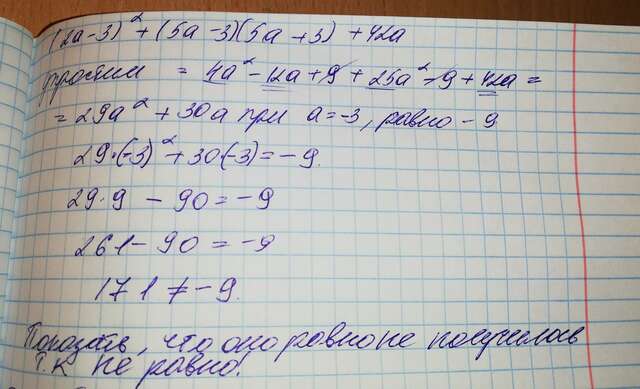 (2a-3)² + (5a-3)(5a+3) + 42a
упростим = 4a² - 12a + 9 + 25a² - 9 + 42a =
= 29a² + 30a при a = -3, равно - 9
29·(-3)² + 30(-3) = - 9.
29·9 - 90 = -9
261 - 90 = -9
171 ≠ - 9.
Показать, что оно равно не получилось
т.к не равно!